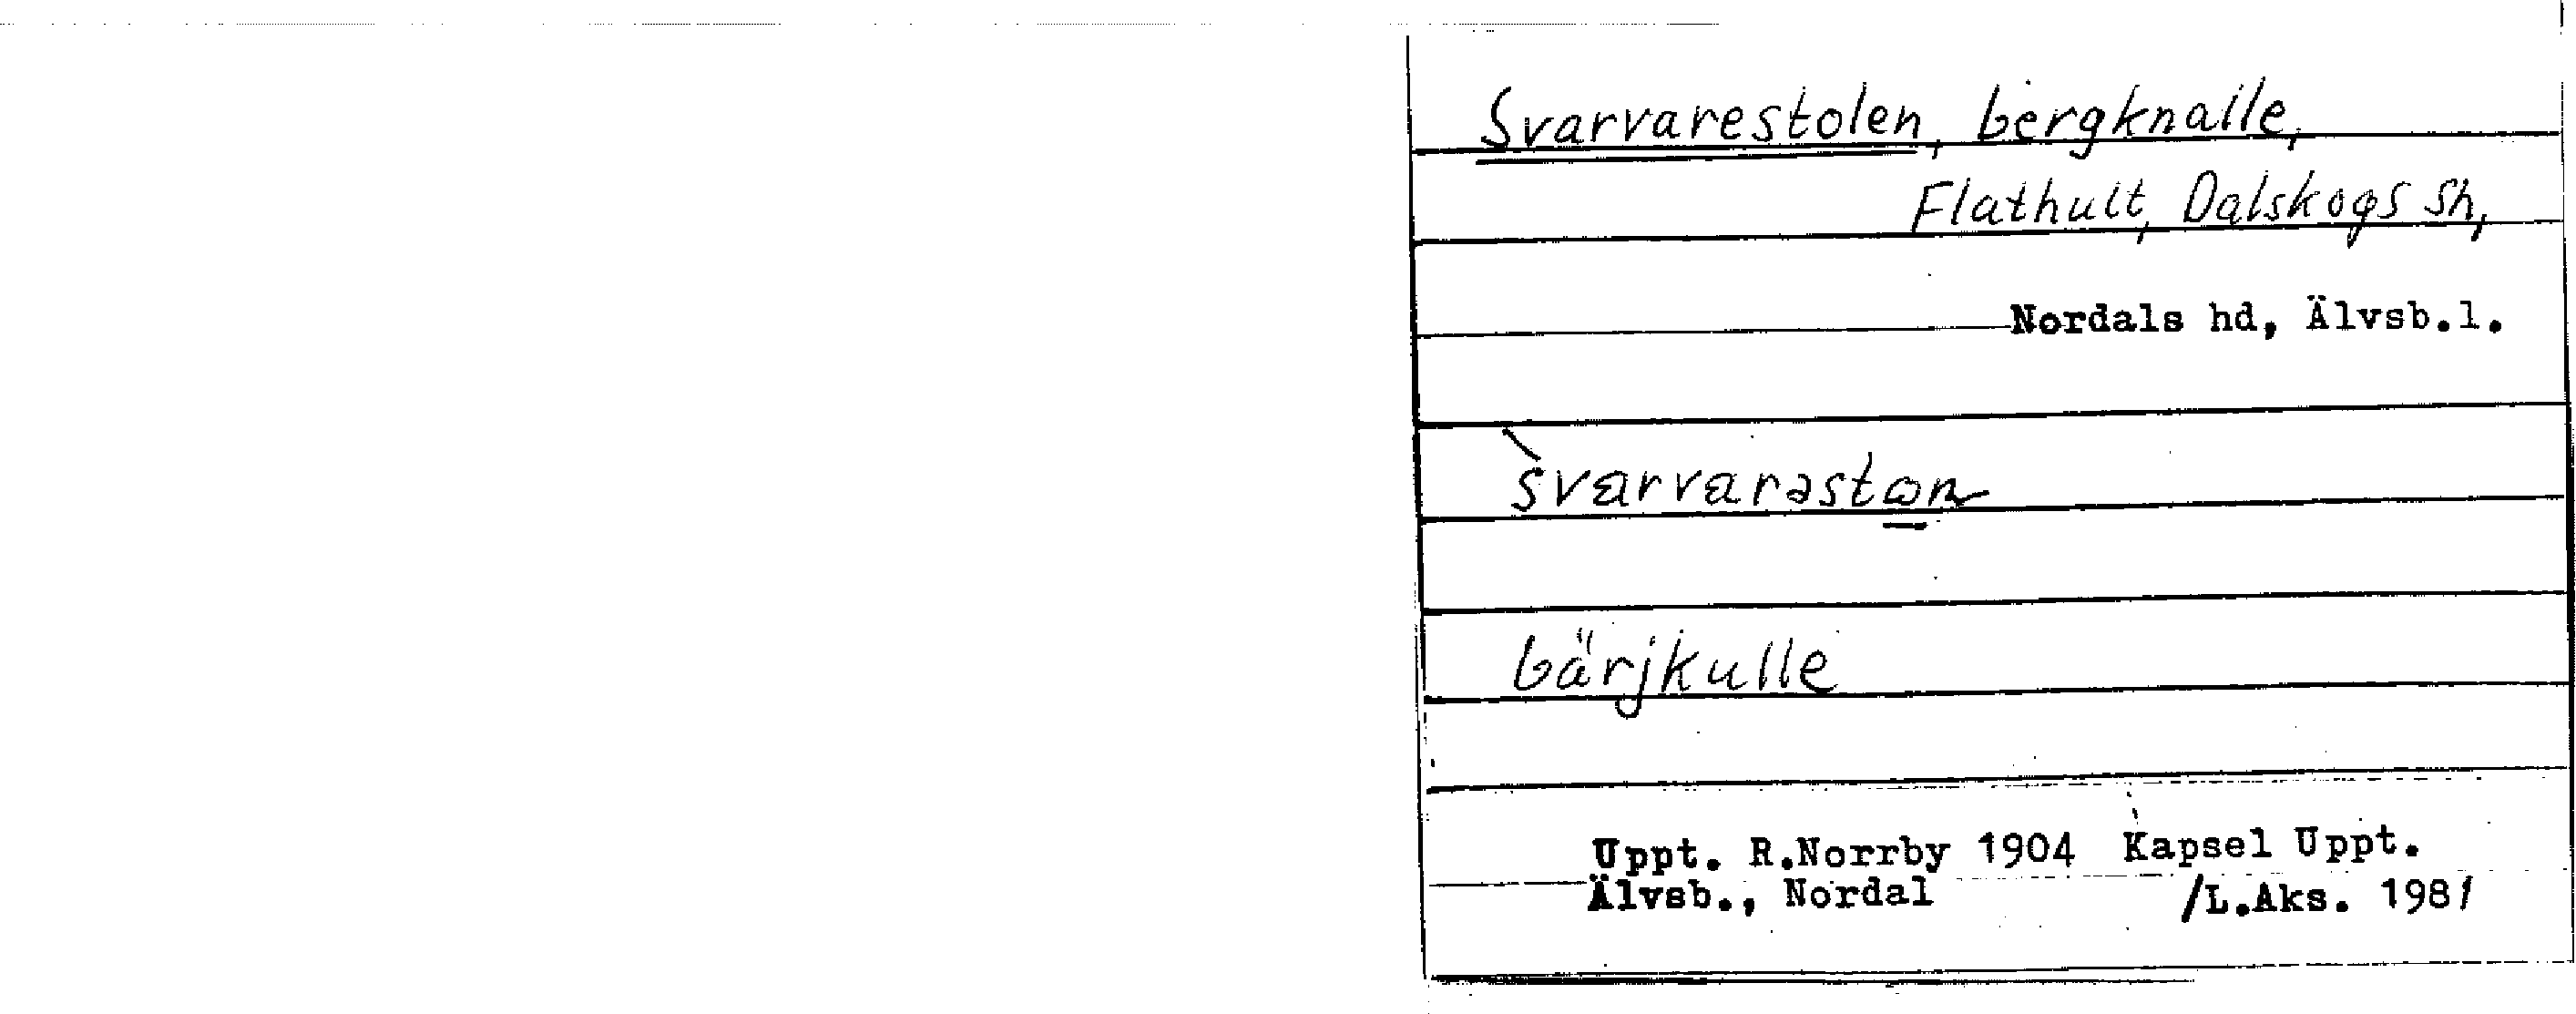 Svarvarestolen, bergknalle,
Flathult, Dalskogs sn,
Nordals hd, Älvsb.l.
bärjkulle
Uppt. R.Norrby 1904 Kapsel Uppt.
Älvsb., Nordal /L.Aks. 1981